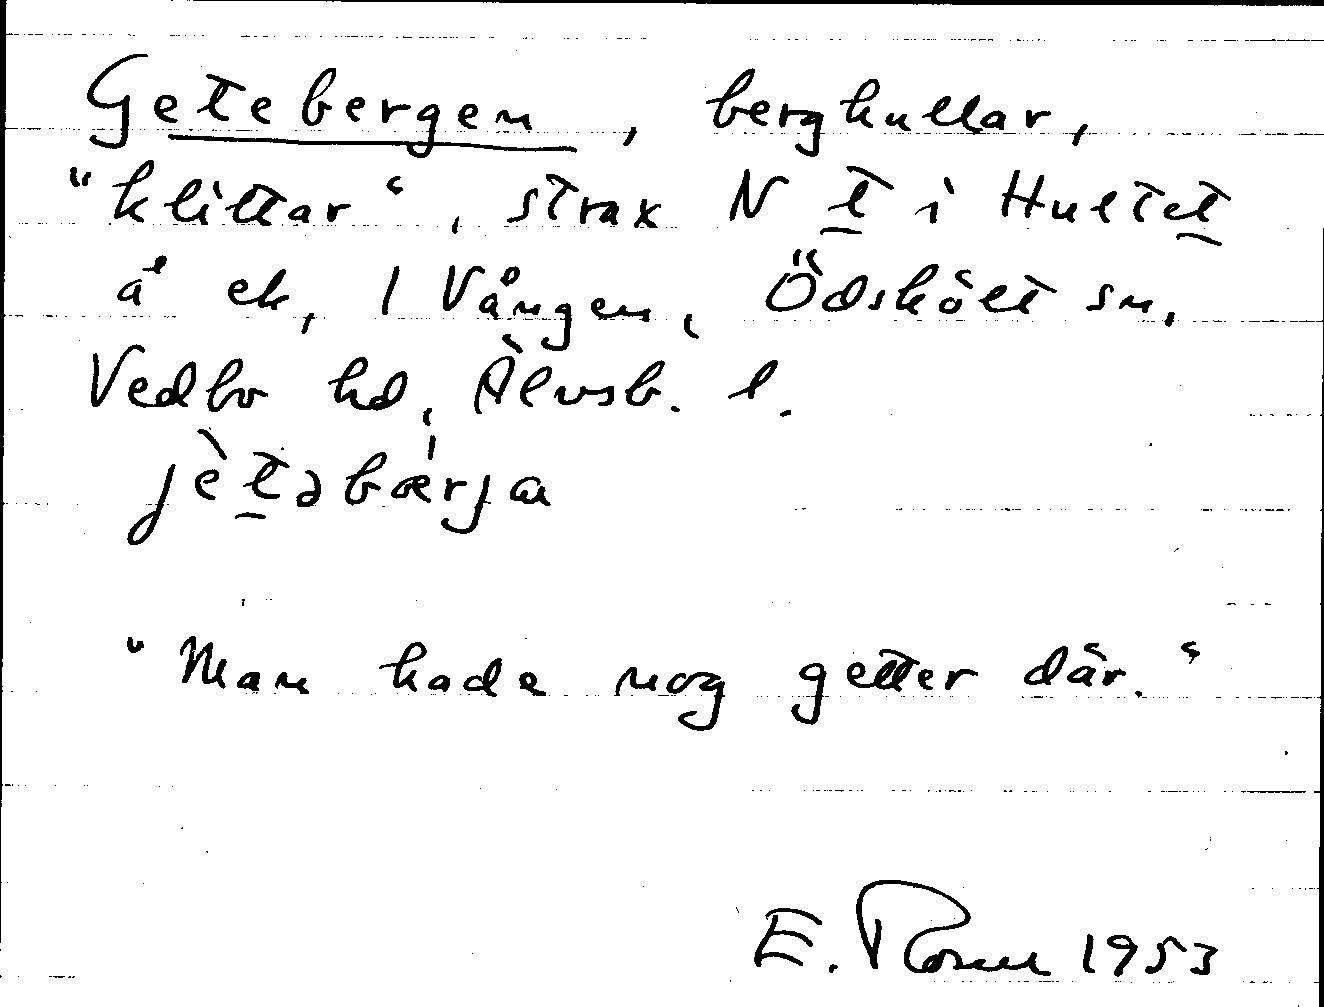 Getebergen, berghullar,
"klittar", strax N t i Hultet
å ek, 1 Vången, Ödskölt sn,
Vedbo hd, Älvsb. l.
jètəbærja
"Man hade nog getter där."
E. 1953